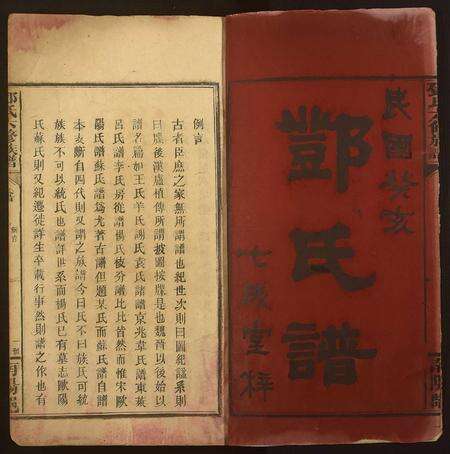 民國癸亥
鄧氏譜
七
堂梓
例言
古者臣庶之家無所謂譜也紀世次則曰圖紀謚系則
曰牒後漢盧植傳所謂披圖按牒是也魏晉以後始以
譜名篇如王氏羊氏謝氏袁氏諸譜京兆韋氏譜東萊
呂氏譜李氏房從譜楊氏枝分譜比比皆然而惟宋歐
陽氏譜蘇氏譜為尤著古譜但題某氏而蘇氏自譜
本支斷自四代則又謂之族譜今曰氏不曰族氏可統
族族不可以統氏也譜詳世系而楊氏已有墓志歐陽
氏蘇氏則又統遷徙詳生卒載行事然則譜之作也有
鄧氏 修族譜
南陽